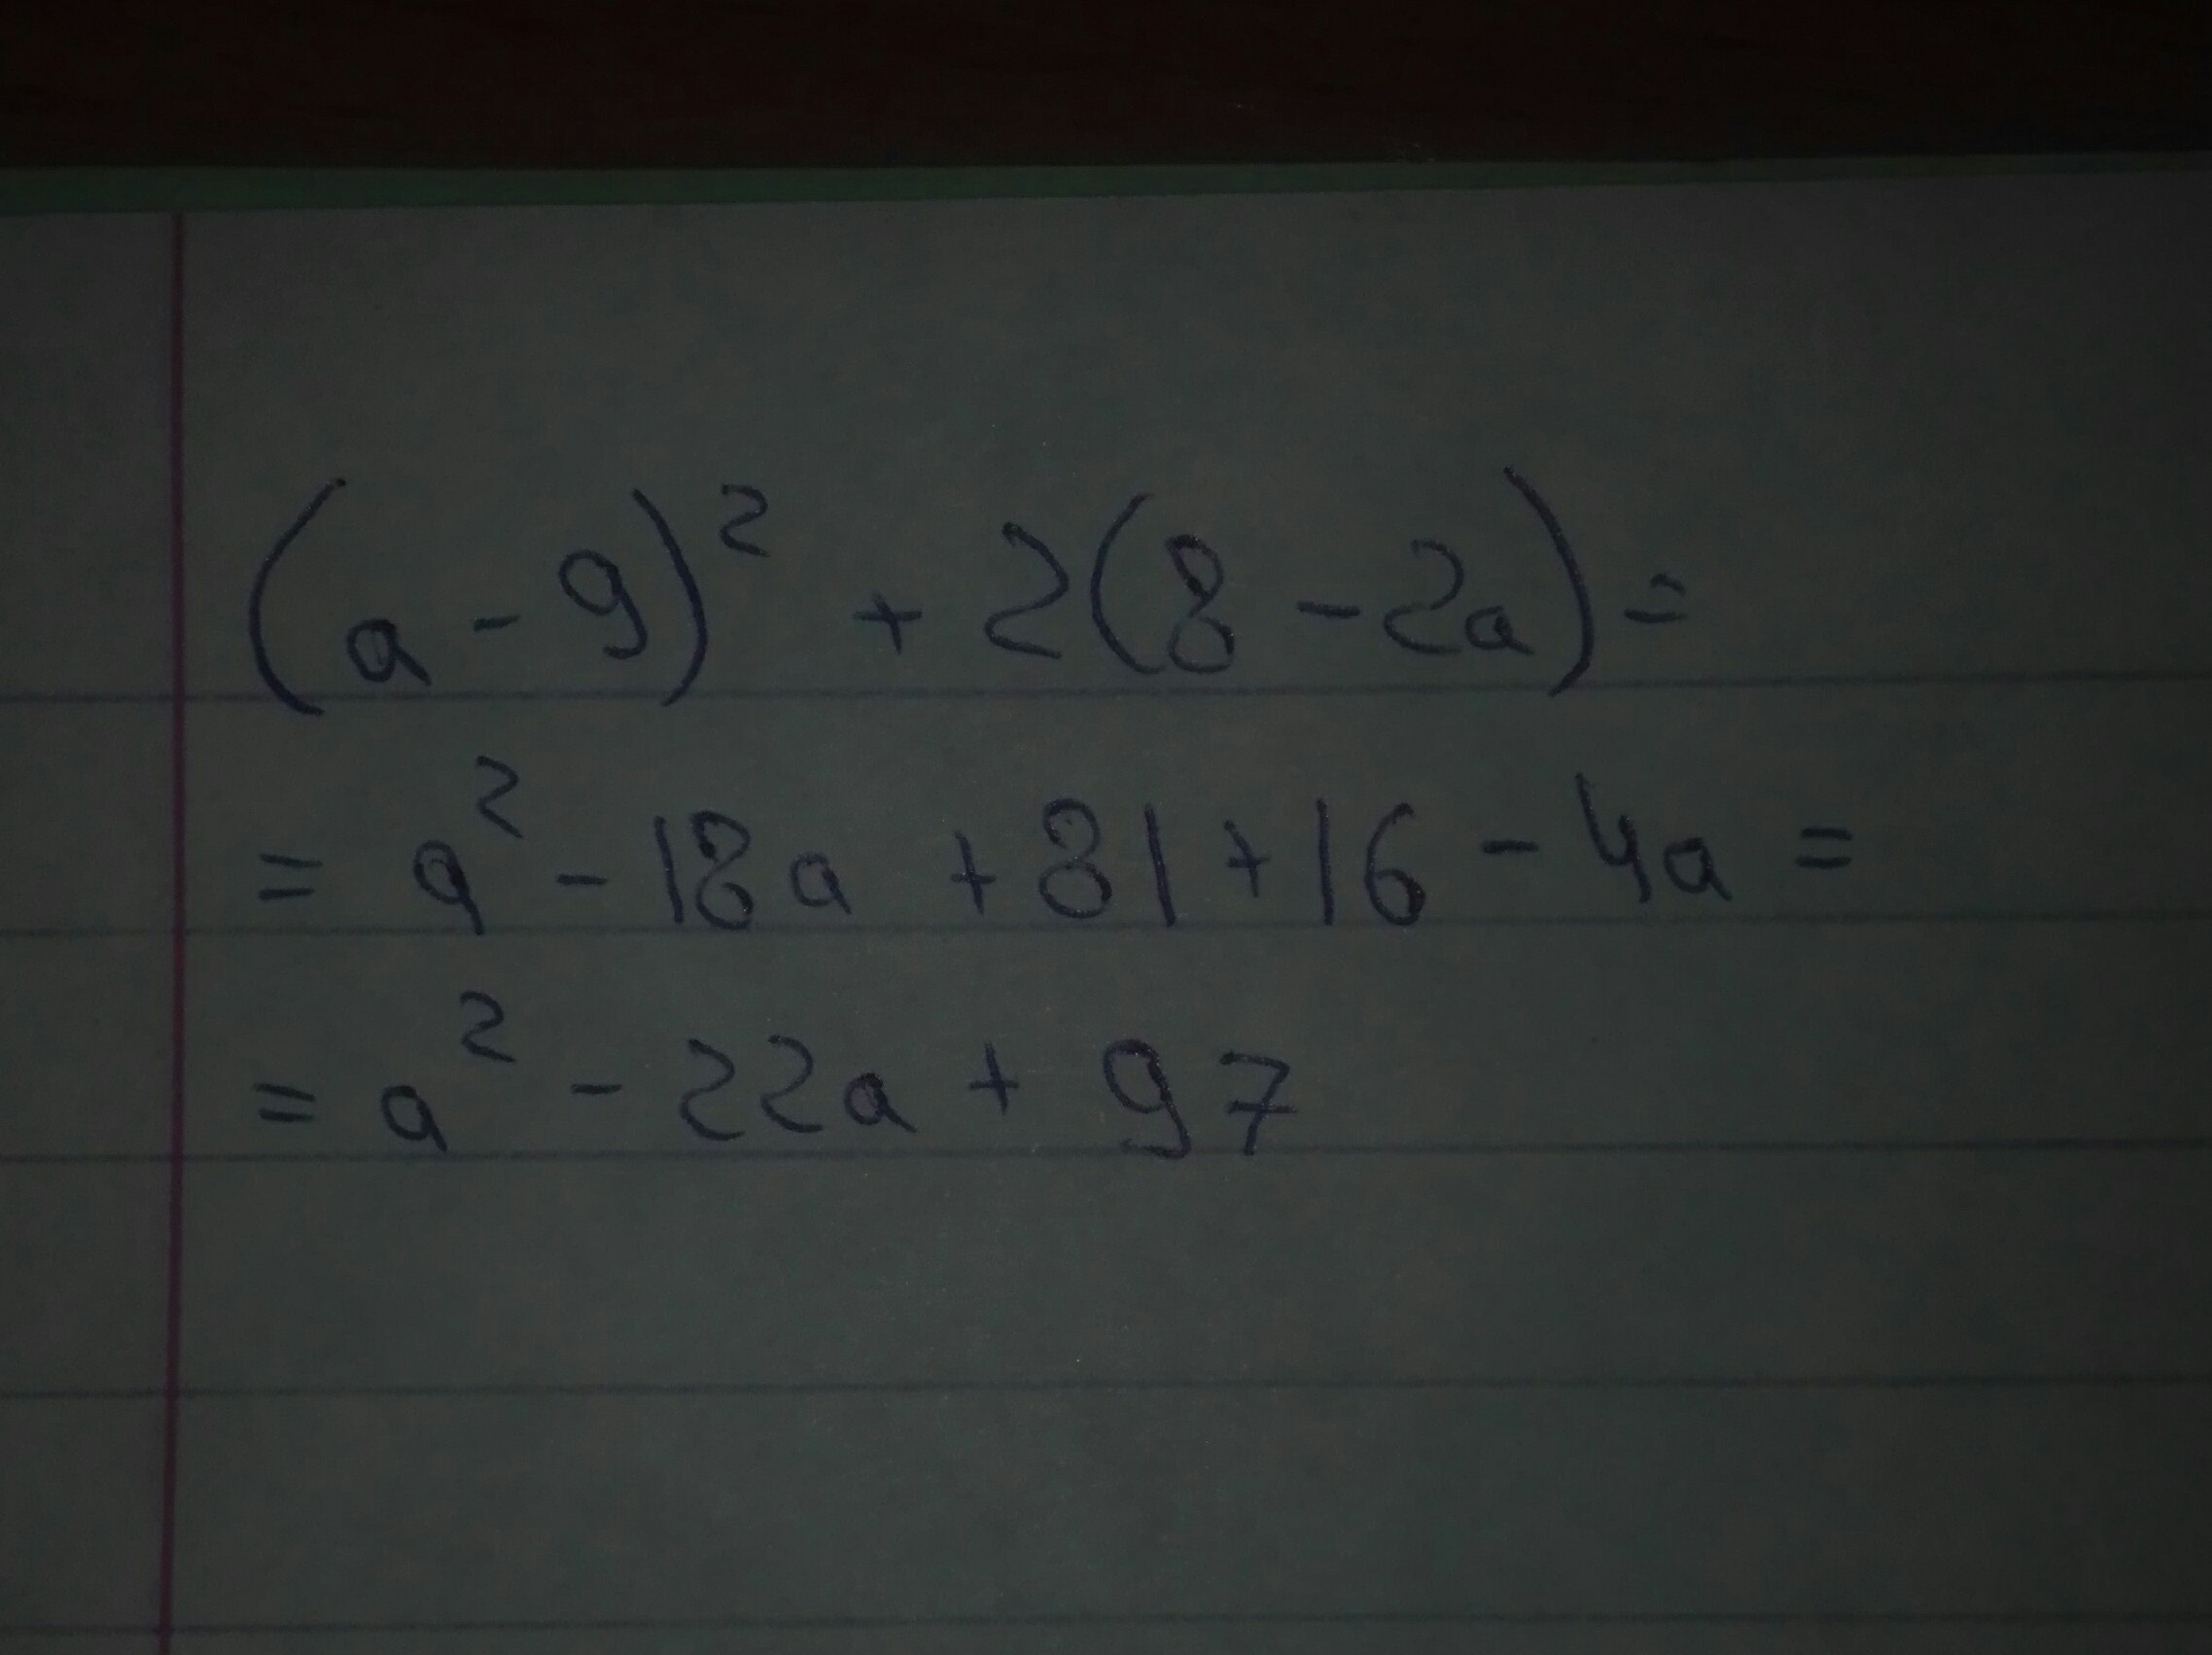 (a - 9)² + 2(8 - 2a) =
= a² - 18a + 81 + 16 - 4a =
= a² - 22a + 97